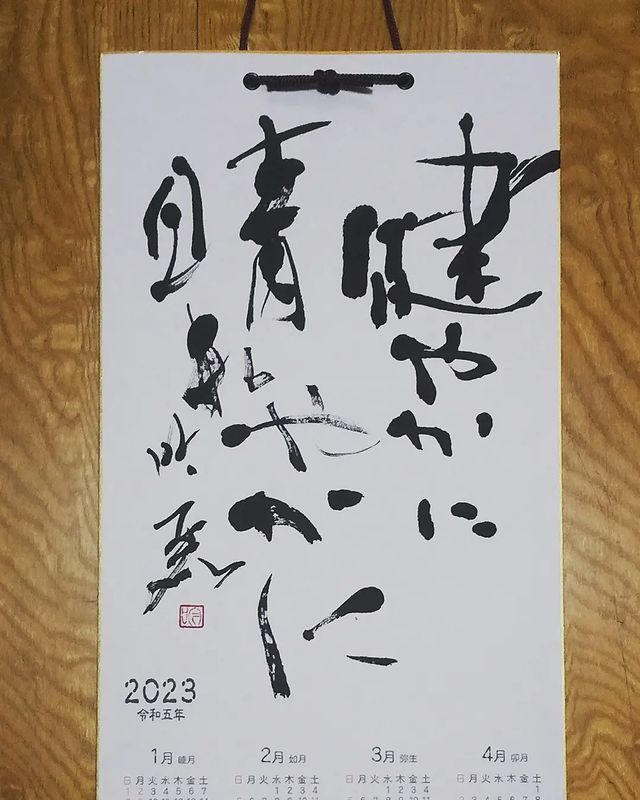 健やかに
晴れやかに
2023
令和五年
1月 睦月
日 月 火 水 木 金 土
1 2 3 4 5 6 7
2月 如月
日 月 火 水 木 金 土
1 2 3 4
3月 弥生
日 月 火 水 木 金 土
1 2 3 4
4月 卯月
日 月 火 水 木 金 土
1